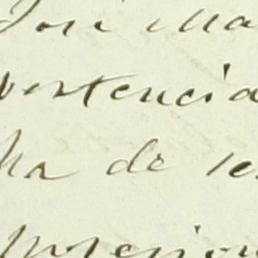 José Ma
vertencia
ha de se